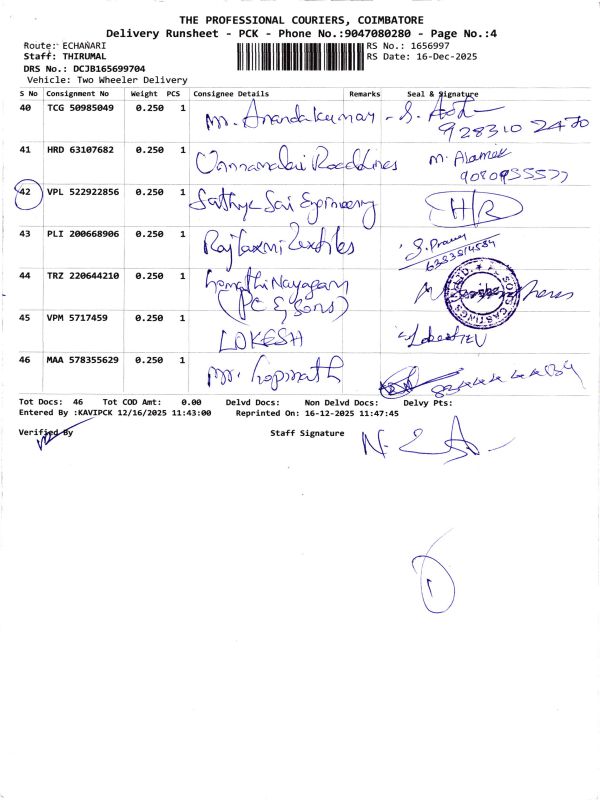 THE PROFESSIONAL COURIERS, COIMBATORE
Delivery Runsheet - PCK - Phone No.:9047080280 - Page No.:4
Route: ECHANARI
RS No.: 1656997
Staff: THIRUMAL
RS Date: 16-Dec-2025
DRS No.: DCJB165699704
Vehicle: Two Wheeler Delivery
S No Consignment No Weight PCS Consignee Details Remarks Seal & Signature
40 TCG 50985049 0.250 1 Mr. Anandakumar
9283102470
41 HRD 63107682 0.250 1 Unnamalai Roadlines
42 VPL 522922856 0.250 1 Sathya Sai Engineering
43 PLI 200668906 0.250 1 Rajlaxmi Textiles
44 TRZ 220644210 0.250 1 Gomathi Nayagam
(PC & Sons)
45 VPM 5717459 0.250 1 LOKESH
46 MAA 578355629 0.250 1 Mr. Gopinath
Tot Docs: 46 Tot COD Amt: 0.00 Delvd Docs: Non Delvd Docs: Delvy Pts:
Entered By :KAVIPCK 12/16/2025 11:43:00 Reprinted On: 16-12-2025 11:47:45
Verified By Staff Signature